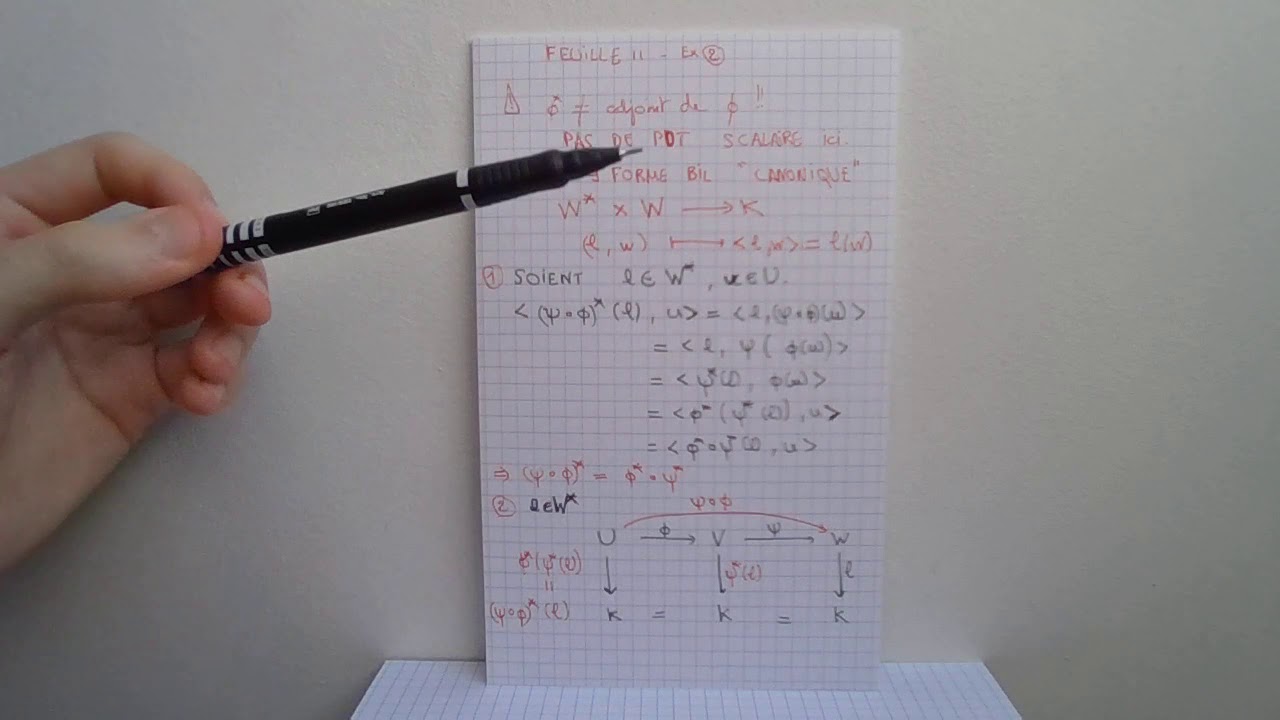 FEUILLE 11 - Ex ②
⚠ ϕ* ≠ adjoint de ϕ !!
PAS DE PDT SCALAIRE ici.
FORME BIL "CANONIQUE"
W* × W ⟶ K
(l, w) ⟼ <l,w> = l(w)
① SOIENT l ∈ W*, u ∈ U.
< (ψ∘ϕ)* (l), u> = < l, (ψ∘ϕ)(u) >
= < l, ψ( ϕ(u) >
= < ψ*(l), ϕ(u) >
= < ϕ* (ψ*(l)), u >
= < ϕ*∘ψ*(l), u >
⇒ (ψ∘ϕ)* = ϕ* ∘ ψ*
② l∈W*
ψ∘ϕ
U ⟶ ϕ V ⟶ ψ W
ϕ*(ψ*(l)) ↓ ↓ ψ*(l) ↓ l
=
(ψ∘ϕ)* (l) K = K = K